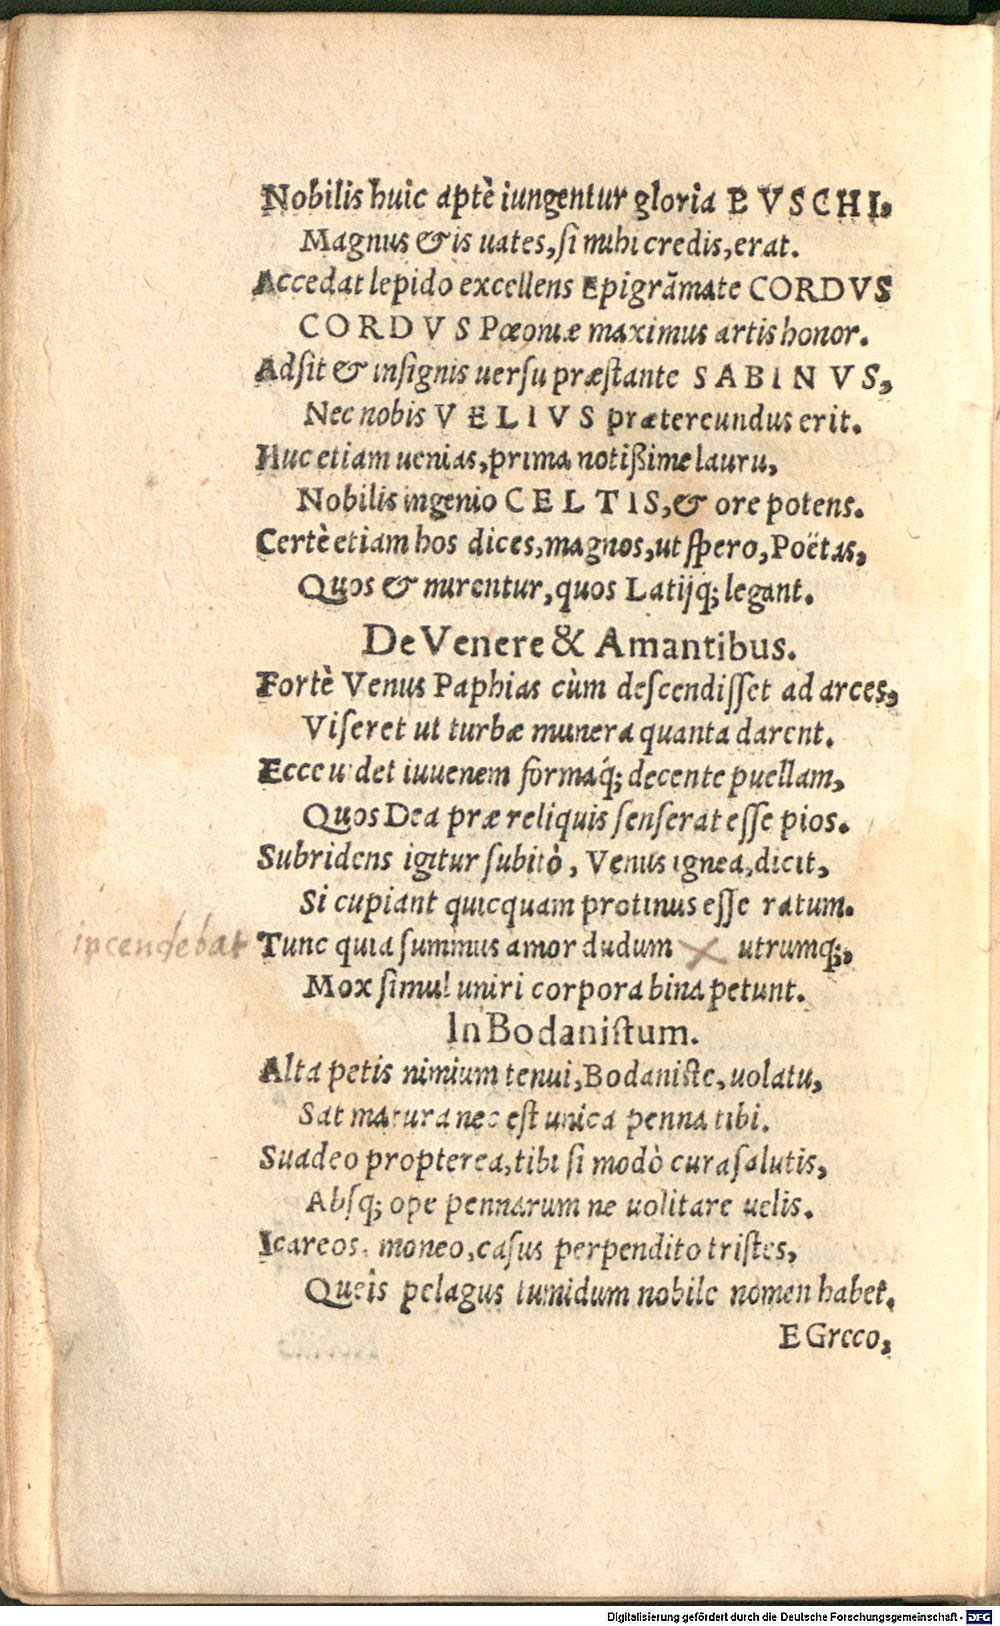 Nobilis huic aptè iungentur gloria BVSCHI,
Magnus & is uates, si mihi credis, erat.
Accedat lepido excellens Epigrãmate CORDVS
CORDVS Pœoniæ maximus artis honor.
Adsit & insignis uersu præstante SABINVS,
Nec nobis VELIVS prætereundus erit.
Huc etiam uenias, prima notißime lauru,
Nobilis ingenio CELTIS, & ore potens.
Certè etiam hos dices, magnos, ut spero, Poëtas,
Quos & mirentur, quos Latijq; legant.
De Venere & Amantibus.
Fortè Venus Paphias cùm descendisset ad arces,
Viseret ut turbæ munera quanta darent.
Ecce uidet iuuenem formaq́; decente puellam,
Quos Dea præ reliquis senserat esse pios.
Subridens igitur subitò, Venus ignea, dicit,
Si cupiant quicquam protinus esse ratum.
incendebat Tunc quia summus amor dudum × utrumq;,
Mox simul uniri corpora bina petunt.
In Bodanistum.
Alta petis nimium tenui, Bodaniste, uolatu,
Sat matura nec est unica penna tibi.
Suadeo propterea, tibi si modò cura salutis,
Absq; ope pennarum ne uolitare uelis.
Icareos, moneo, casus perpendito tristes,
Queîs pelagus tumidum nobile nomen habet.
E Greco,
Digitalisierung gefördert durch die Deutsche Forschungsgemeinschaft - DFG